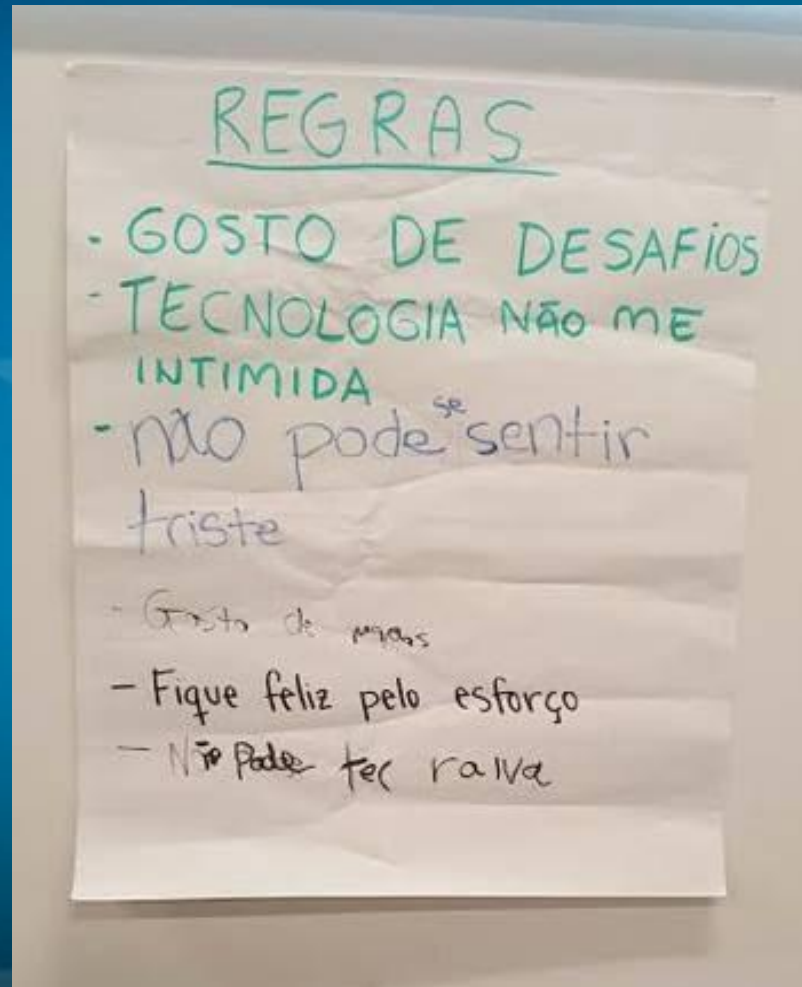 REGRAS
- GOSTO DE DESAFIOS
- TECNOLOGIA NÃO ME
INTIMIDA
- não pode se sentir
triste
- Gosto de
- Fique feliz pelo esforço
- Não Pode ter raiva